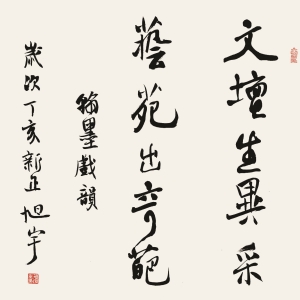 文壇生異采
藝苑出奇葩
翰墨戲韻
歲次丁亥新正旭宇